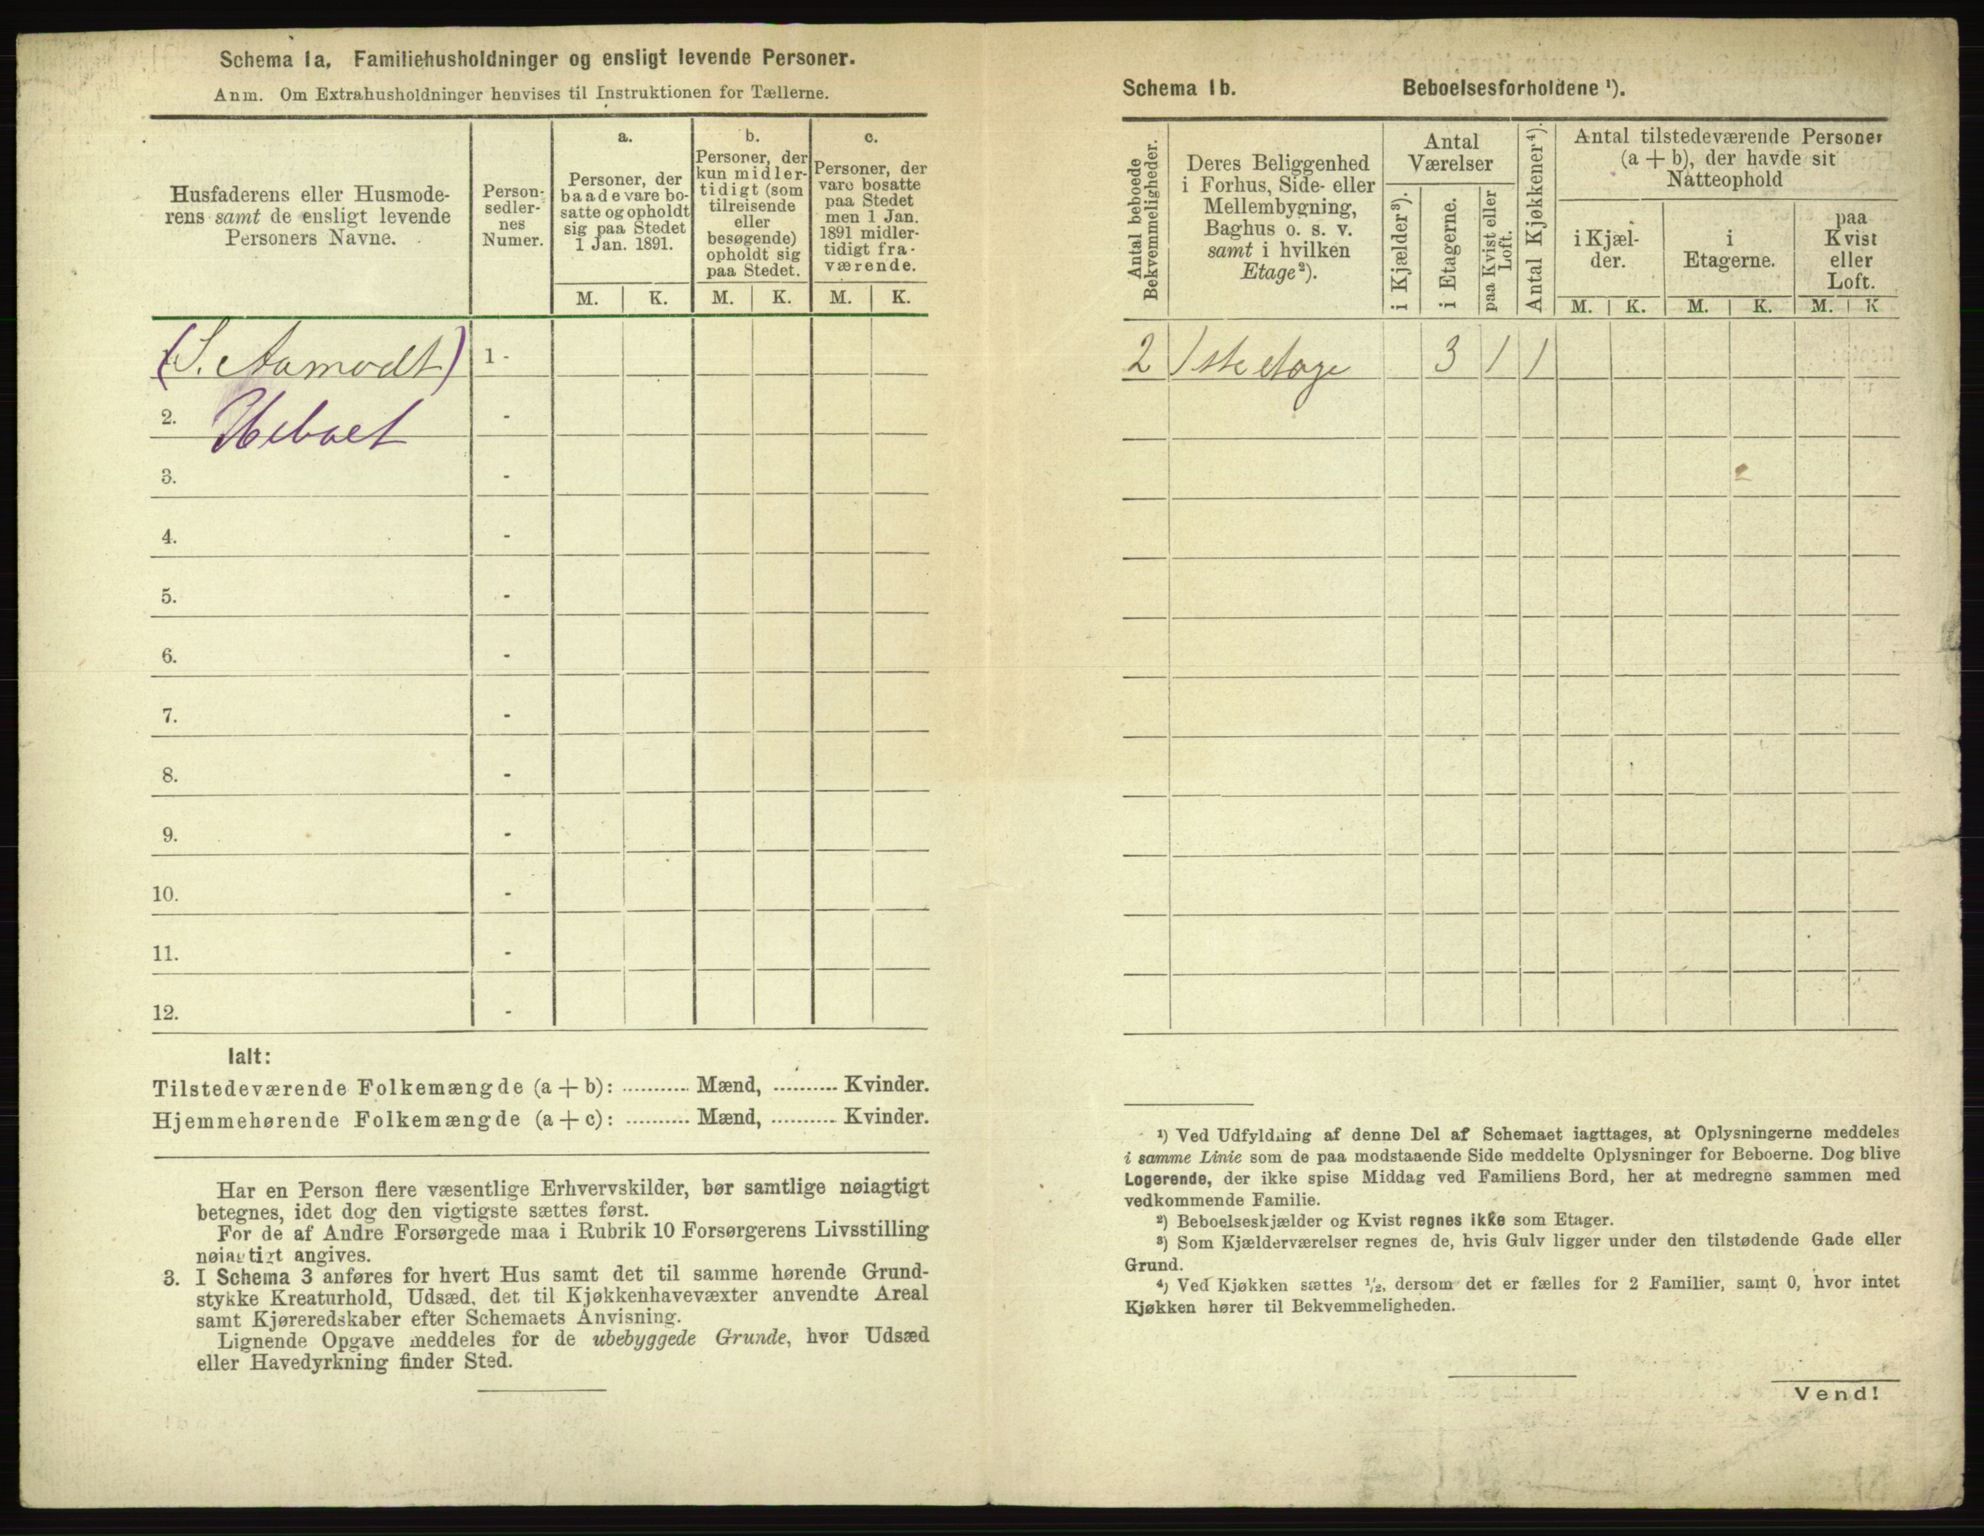 Schema 1a. Familiehusholdninger og ensligt levende Personer.
Anm. Om Extrahusholdninger henvises til Instruktionen for Tællerne.
Husfaderens eller Husmode-
rens samt de ensligt levende
Personers Navne.
Person-
sedler-
nes
Numer.
a.
Personer, der
baade vare bo-
satte og opholdt
sig paa Stedet
1 Jan. 1891.
b.
Personer, der
kun midler-
tidigt (som
tilreisende
eller
besøgende)
opholdt sig
paa Stedet.
c.
Personer, der
vare bosatte
paa Stedet
men 1 Jan.
1891 midler-
tidigt fra-
værende.
M. K. M. K. M. K.
(S. Aamodt) 1 -
2. Ubeboet -
3. -
4. -
5. -
6. -
7. -
8. -
9. -
10. -
11. -
12. -
Ialt:
Tilstedeværende Folkemængde (a + b): .......... Mænd, .......... Kvinder.
Hjemmehørende Folkemængde (a + c): .......... Mænd, .......... Kvinder.
Har en Person flere væsentlige Erhvervskilder, bør samtlige nøiagtigt
betegnes, idet dog den vigtigste sættes først.
For de af Andre Forsørgede maa i Rubrik 10 Forsørgerens Livsstilling
nøiagtigt angives.
3. I Schema 3 anføres for hvert Hus samt det til samme hørende Grund-
stykke Kreaturhold, Udsæd, det til Kjøkkenhavevæxter anvendte Areal
samt Kjøreredskaber efter Schemaets Anvisning.
Lignende Opgave meddeles for de ubebyggede Grunde, hvor Udsæd
eller Havedyrkning finder Sted.
Schema 1b. Beboelsesforholdene ¹).
Antal beboede
Bekvemmeligheder.
Deres Beliggenhed
i Forhus, Side- eller
Mellembygning,
Baghus o. s. v.
samt i hvilken
Etage²).
Antal
Værelser
i Kjælder³).
i Etagerne.
paa Kvist eller
Loft.
Antal Kjøkkener⁴).
Antal tilstedeværende Personer
(a + b), der havde sit
Natteophold
i Kjæl-
der.
i
Etagerne.
paa
Kvist
eller
Loft.
M. K. M. K. M. K
2 1ste etage 3 1 1
¹) Ved Udfyldning af denne Del af Schemaet iagttages, at Oplysningerne meddeles
i samme Linie som de paa modstaaende Side meddelte Oplysninger for Beboerne. Dog blive
Logerende, der ikke spise Middag ved Familiens Bord, her at medregne sammen med
vedkommende Familie.
²) Beboelseskjælder og Kvist regnes ikke som Etager.
³) Som Kjælderværelser regnes de, hvis Gulv ligger under den tilstødende Gade eller
Grund.
⁴) Ved Kjøkken sættes ½, dersom det er fælles for 2 Familier, samt 0, hvor intet
Kjøkken hører til Bekvemmeligheden.
Vend!